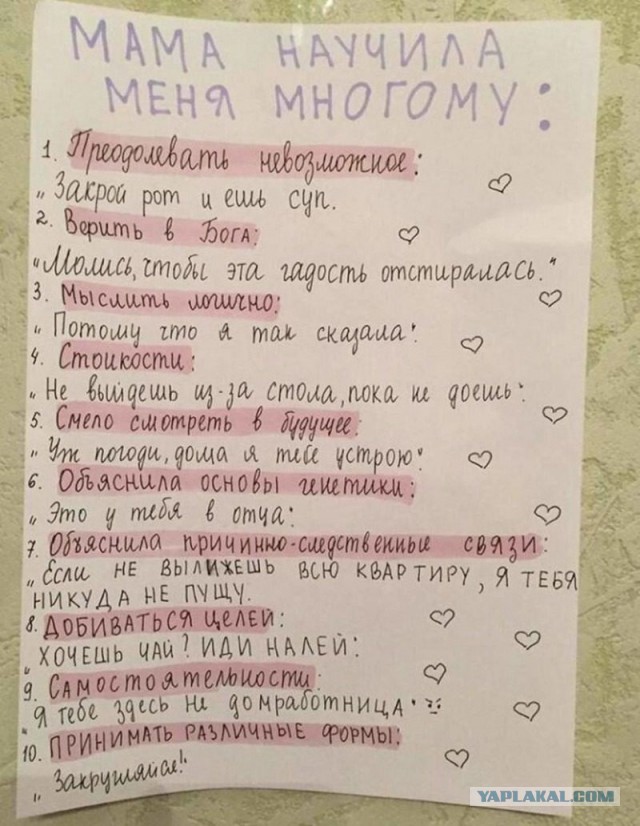 МАМА НАУЧИЛА
МЕНЯ МНОГОМУ:
1. Преодолевать невозможное:
„Закрой рот и ешь суп.
2. Верить в Бога:
„Молись, чтобы эта гадость отстиралась."
3. Мыслить логично:
„Потому что я так сказала".
4. Стойкости:
„Не выйдешь из-за стола, пока не доешь".
5. Смело смотреть в будущее:
„Уж погоди, дома я тебе устрою"
6. Объяснила основы генетики:
„Это у тебя в отца"
7. Объяснила причинно-следственные связи:
„Если НЕ ВЫЛИЖЕШЬ ВСЮ КВАРТИРУ, Я ТЕБЯ
НИКУДА НЕ ПУЩУ.
8. ДОБИВАТЬСЯ ЦЕЛЕЙ:
„ХОЧЕШЬ ЧАЙ? ИДИ НАЛЕЙ"
9. САМОСТОЯТЕЛЬНОСТИ:
„Я тебе здесь не домработница"
10. ПРИНИМАТЬ РАЗЛИЧНЫЕ ФОРМЫ:
„Закругляйся!"
YAPLAKAL.COM